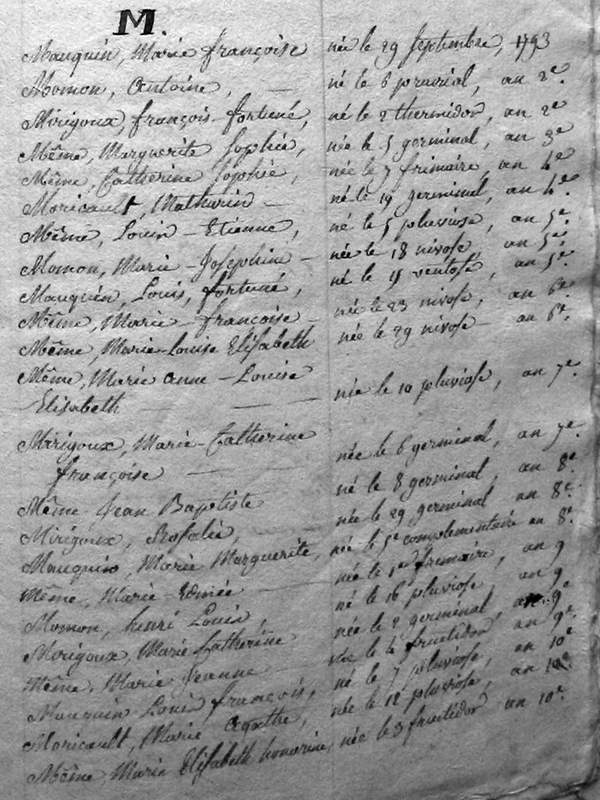 M.
Mauquin, Marie françoise née le 29 Septembre, 1793
Momon, Antoine, né le 6 prairial, an 2e.
Mirigoux, françois-fortuné, né le 2 thermidor, an 2e
Même, Marguerite Sophie, née le 5 germinal, an 3e
Même, Catherine Sophie, née le 7 frimaire, an 4e
Moricault, Mathurin né le 19 germinal, an 4e.
Même, Louis-Etienne, né le 5 pluviose, an 5e.
Momon, Marie-Josephine née le 18 nivose, an 5e.
Mauquin, Louis, fortuné, né le 15 ventose, an 5e.
Même, Marie-françoise née le 23 nivose, an 6e.
Même, Marie-Louise Elisabeth née le 29 nivose an 6e.
Même, Marie anne-Louise
Elisabeth née le 10 pluviose, an 7e.
Mirigoux, Marie-Catherine
françoise née le 6 germinal, an 7e.
Même Jean Baptiste né le 8 germinal, an 8e.
Mirigoux, Rosalie, née le 29 germinal an 8e.
Mauquin, Marie Marguerite, née le 5e complémentaire an 8e.
Même, Marie-Edmée née le 1er frimaire, an 9
Momon, henri Louis, né le 16 pluviose, an 9.
Morigoux, Marie Catherine née le 2 germinal, an 9e
Même, Marie Jeanne née le fructidor an 9e
Mauquin Louis françois, né le 7 pluviose, an 10e
Moricault, Marie Agathe, née le 12 pluviose, an 10e.
Même, Marie Elisabeth honorine, née le 3 fructidor an 10e.